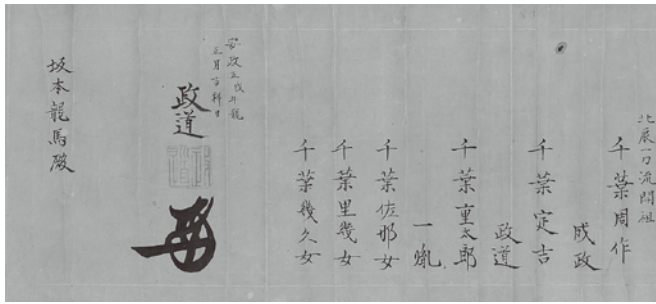 北辰一刀流開祖
千葉周作
成政
千葉定吉
政道
千葉重太郎
一胤
千葉佐那女
千葉里幾女
千葉幾久女
安政五戊午
正月吉
政道
坂本龍馬殿